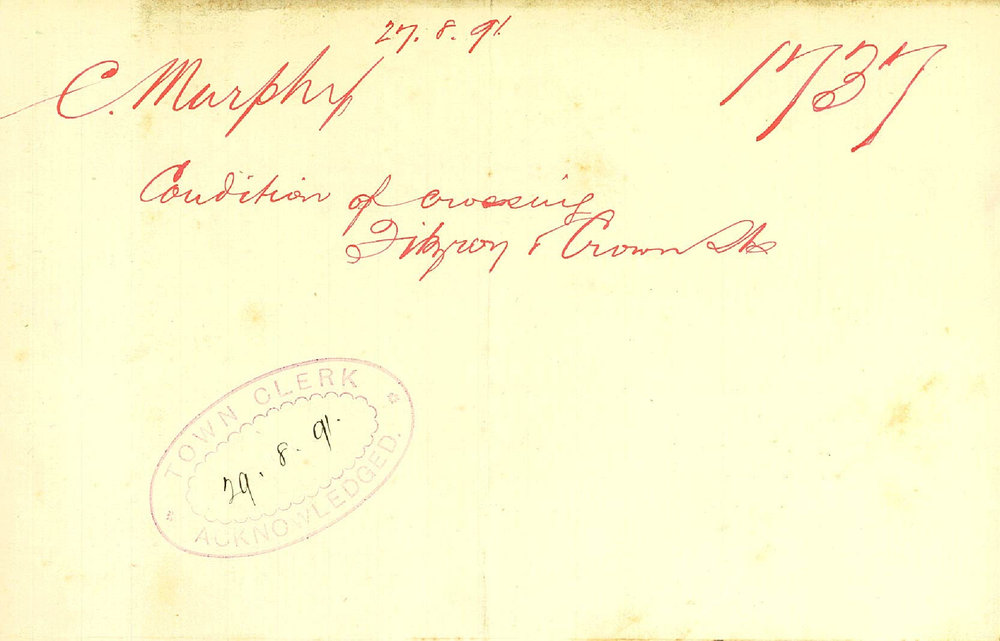 27. 8. 91.
C. Murphy
1737
Condition of crossing
Fitzroy & Crown Sts
TOWN CLERK
29. 8. 91.
ACKNOWLEDGED.